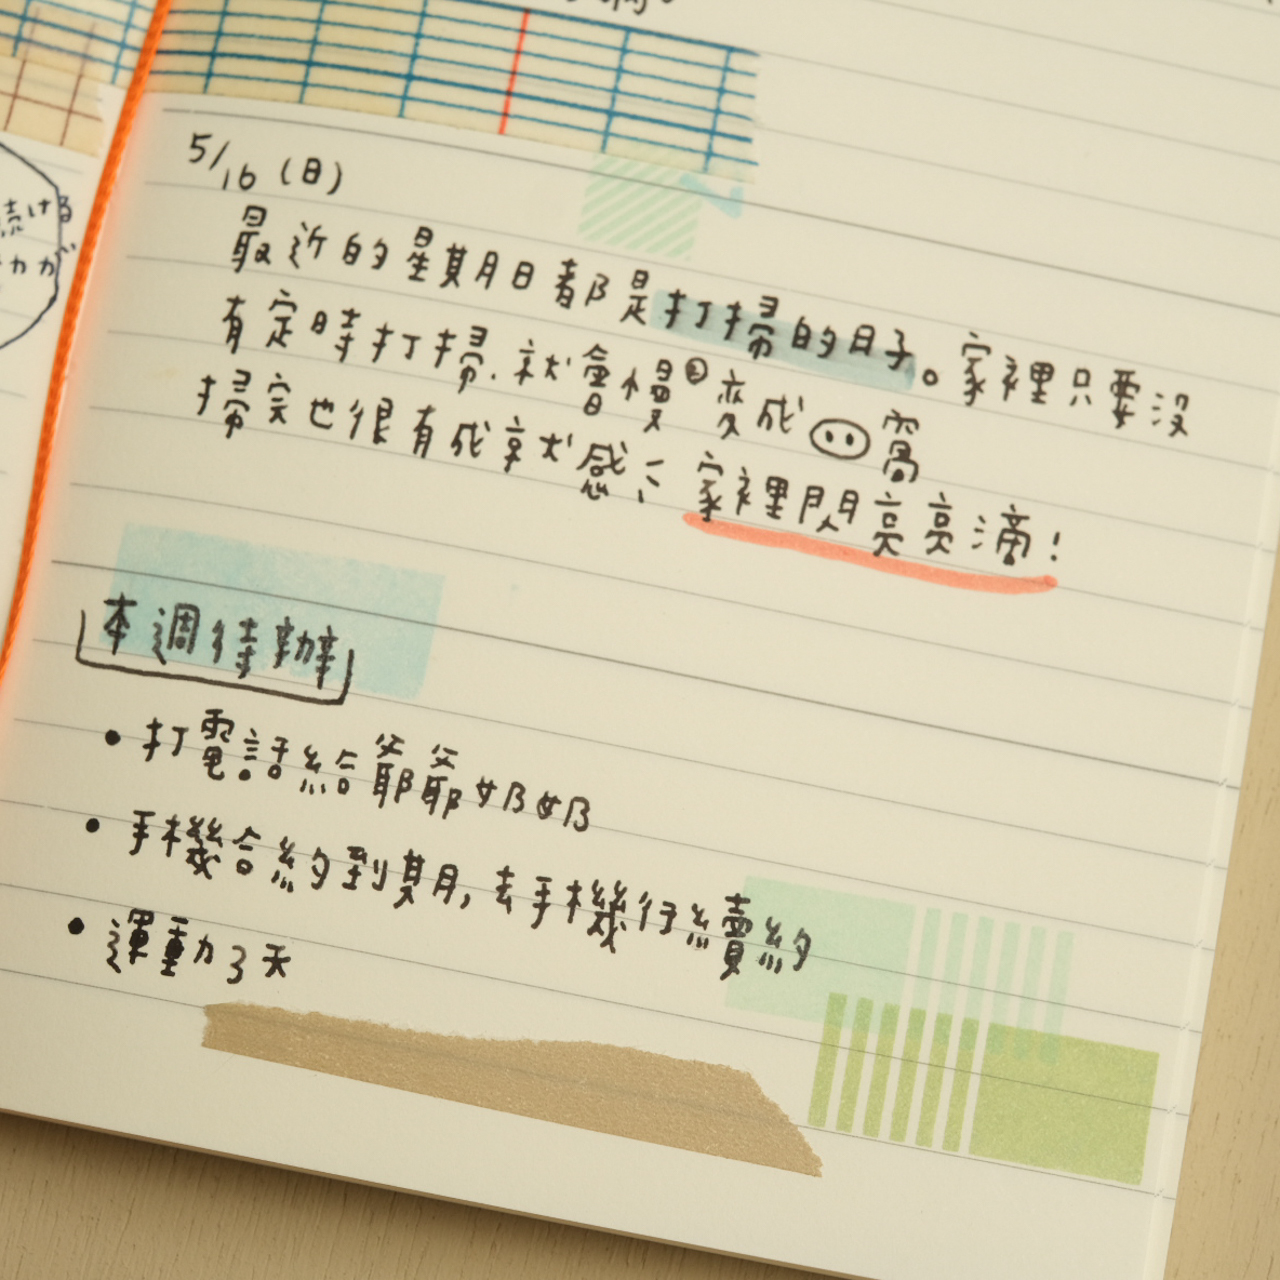 続ける
力が
5/16 (日)
最近的星期日都是打掃的日子。家裡只要沒
有定時打掃.就會慢②变成窩
掃完也很有成就感ミ 家裡閃亮亮滴!
本週待辦
• 打電話給爺爺奶奶
• 手機合約到期,去手機行續約
• 運動3天